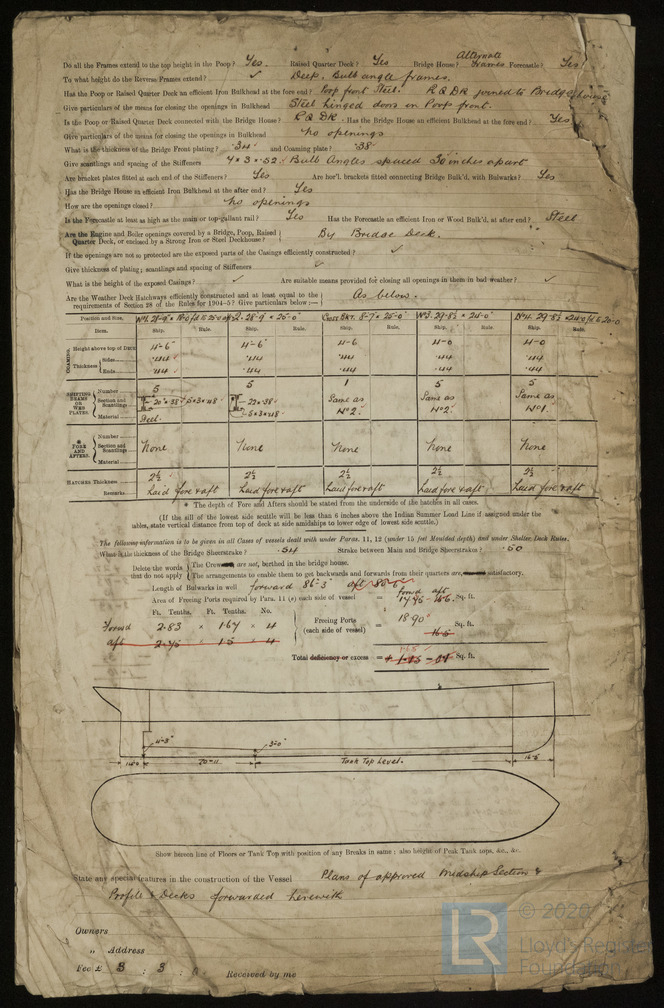 Do all the Frames extend to the top height in the Poop? Yes. Raised Quarter Deck? Yes Bridge House? Alternate Frames Forecastle? Yes
To what height do the Reverse Frames extend? ✓ Deep Bulb angle frames.
Has the Poop or Raised Quarter Deck an efficient Iron Bulkhead at the fore end? Poop front Steel. R Q DK joined to Bridge house
Give particulars of the means for closing the openings in Bulkhead Steel hinged doors in Poop front.
Is the Poop or Raised Quarter Deck connected with the Bridge House? R Q DK. Has the Bridge House an efficient Bulkhead at the fore end? Yes
Give particulars of the means for closing the openings in Bulkhead No openings
What is the thickness of the Bridge Front plating? .34 and Coaming plate? .38
Give scantlings and spacing of the Stiffeners 7 × 3 × .32 Bulb Angles spaced 30 inches apart
Are bracket plates fitted at each end of the Stiffeners? Yes Are hor'l. brackets fitted connecting Bridge Bulk'd. with Bulwarks? Yes
Has the Bridge House an efficient Iron Bulkhead at the after end? Yes
How are the openings closed? No openings
Is the Forecastle at least as high as the main or top-gallant rail? Yes Has the Forecastle an efficient Iron or Wood Bulk'd. at after end? Steel
Are the Engine and Boiler openings covered by a Bridge, Poop, Raised
Quarter Deck, or enclosed by a Strong Iron or Steel Deckhouse? By Bridge Deck.
If the openings are not so protected are the exposed parts of the Casings efficiently constructed? ✓
Give thickness of plating; scantlings and spacing of Stiffeners ✓
What is the height of the exposed Casings? ✓ Are suitable means provided for closing all openings in them in bad weather? ✓
Are the Weather Deck Hatchways efficiently constructed and at least equal to the
requirements of Section 28 of the Rules for 1904-5? Give particulars below:— As below.
Position and Size. No 2. 28-9 × 25-0 Cross Bkr. 8-7 × 25-0 No 3. 29-8½ × 24-0
Item. Ship. Rule. Ship. Rule. Ship. Rule. Ship. Rule. Ship. Rule.
COAMING. Height above top of Deck 4-6 4-6 4-6 4-0 4-0
Thickness Sides .44 .44 .44 .44 .44
Ends .44 .44 .44 .44 .44
SHIFTING BEAMS OR WEB PLATES. Number 5 5 1 5 5
Section and Scantlings 20 × 38 5 × 3 × 48 22 × 38 5 × 3 × 48 Same as No 2. Same as No 2. Same as No 1.
Material Steel.
* FORE AND AFTERS. Number
Section and Scantlings None None None None None
Material
HATCHES Thickness 2½ 2½ 2½ 2½ 2½
Remarks Laid fore & aft Laid fore & aft Laid fore & aft Laid fore & aft Laid fore & aft
* The depth of Fore and Afters should be stated from the underside of the hatches in all cases.
(If the sill of the lowest side scuttle will be less than 6 inches above the Indian Summer Load Line if assigned under the
tables, state vertical distance from top of deck at side amidships to lower edge of lowest side scuttle.)
The following information is to be given in all Cases of vessels dealt with under Paras. 11, 12 (under 15 feet Moulded depth) and under Shelter Deck Rules.
What is the thickness of the Bridge Sheerstrake? .54 Strake between Main and Bridge Sheerstrakes? .50
Delete the words that do not apply The Crew are not, berthed in the bridge house.
The arrangements to enable them to get backwards and forwards from their quarters are, satisfactory.
Length of Bulwarks in well forward 86-3 aft 80-6
forwd aft.
Area of Freeing Ports required by Para. 11 (e) each side of vessel = 17.45 16.6. Sq. ft.
Ft. Tenths. Ft. Tenths. No.
Forwd 2.83 × 1.67 × 4 Freeing Ports (each side of vessel) = 18.90 Sq. ft.
aft 2.75 × 1.5 × 4 16.5
1.45
Total deficiency or excess = Sq. ft.
4-3 3-0
Tank Top Level. 16-5
Show hereon line of Floors or Tank Top with position of any Breaks in same; also height of Peak Tank tops, &c., &c.
State any special features in the construction of the Vessel Plans of approved Midship Section &
Profile & Decks forwarded herewith
Owners
„ Address
Fee £ 3 : 3 : Received by me
LR © 2020
Lloyd's Register
Foundation